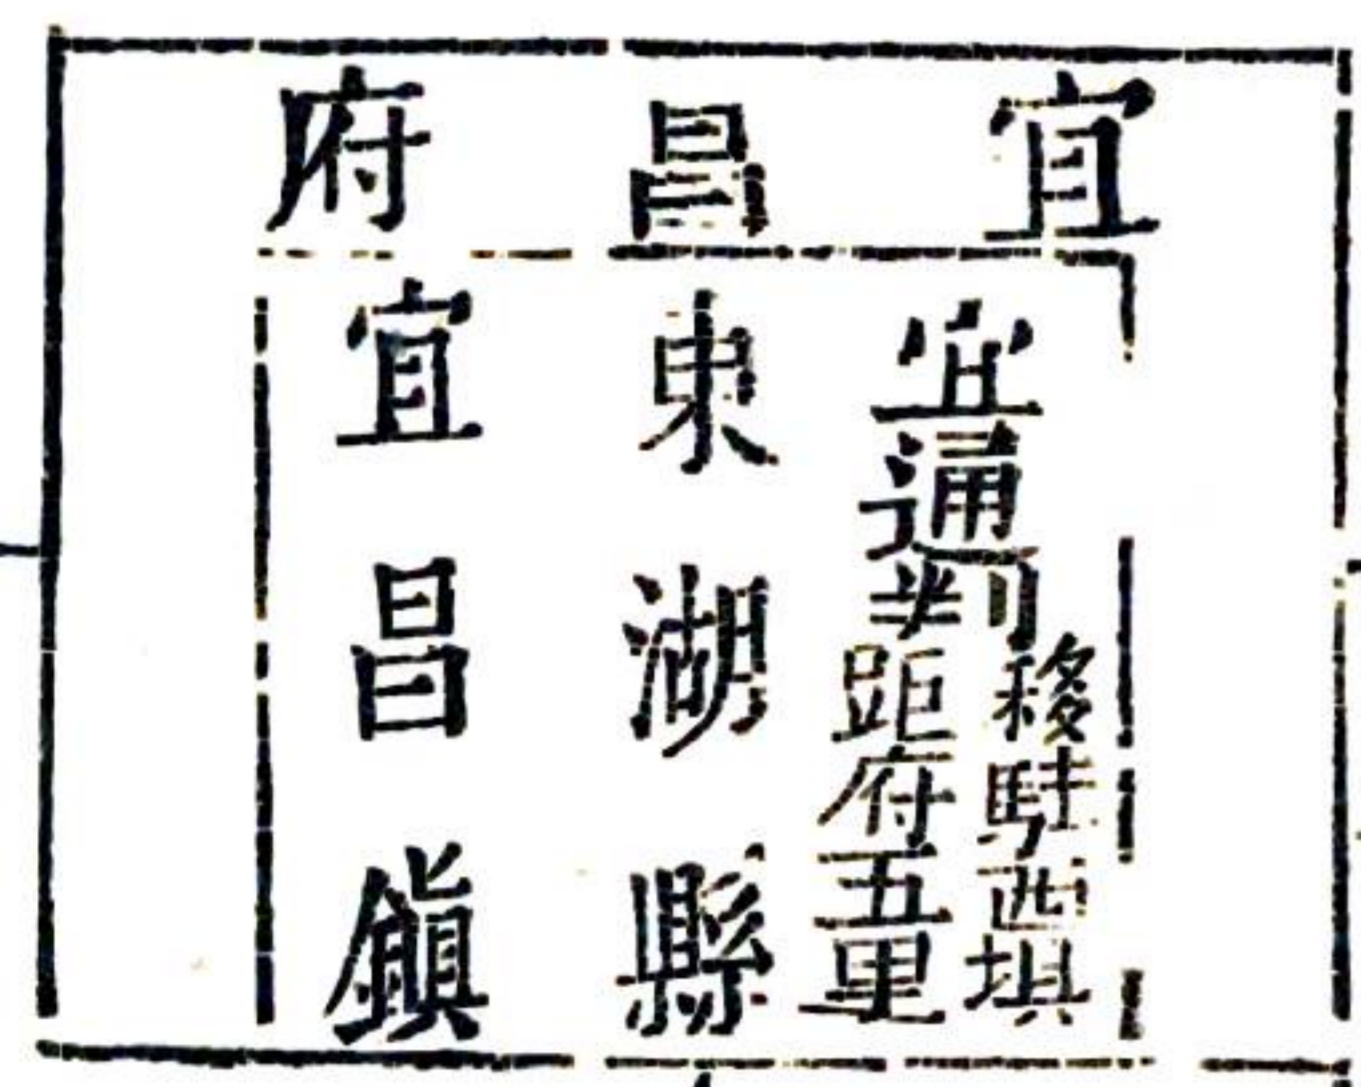 宜昌府
宜通判
移駐西垻
距府五里
東湖縣
宜昌鎭